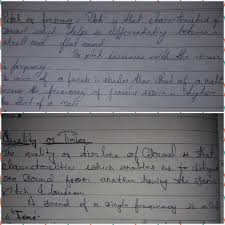 Pitch or frequency - Pitch is that characteristic of
sound which helps in differentiating between a
shrill and flat sound.
The pitch increases with the increase
in frequency.
voice of a female is shriller than that of a male
because the frequency of female voice is higher
than that of a male.
Quality or Timbre
The quality or timbre of sound is that
characteristic which enables us to distinguish
one sound from another having the same
Pitch & loudness.
A sound of a single frequency is called
a "Tone"